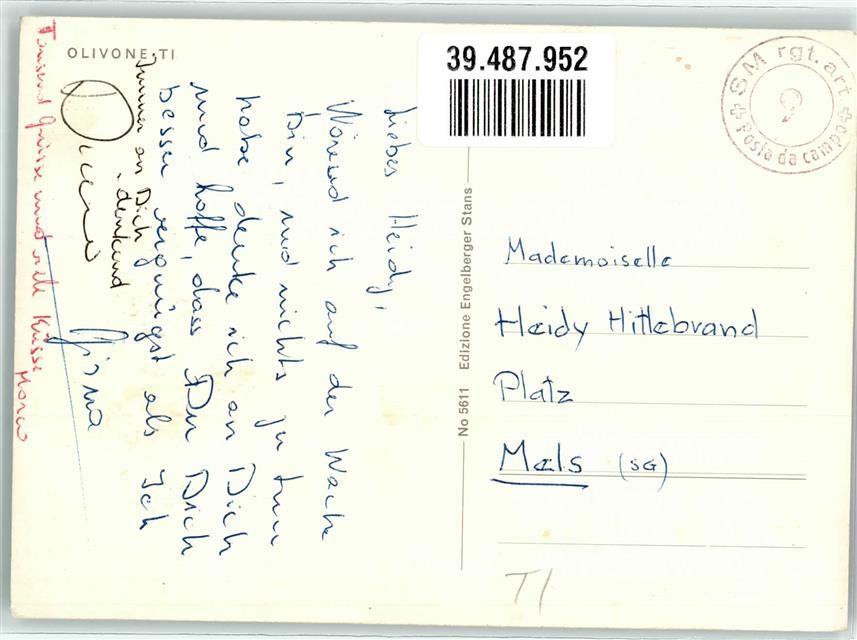 OLIVONE-TI
39.487.952
SM rgt. art
9
Posta da campo
Liebes Heidy,
Wärend ich auf der Wache
bin, und nichts zu tun
habe denke ich an Dich
und hoffe, dass Du Dich
besser vergnügst als Ich
Immer an Dich
denkend
Tausend Grüsse und viele Küsse
Marco
No 5611 Edizione Engelberger Stans
Mademoiselle
Heidy Hitlebrand
Platz
Mels (SG)
TI